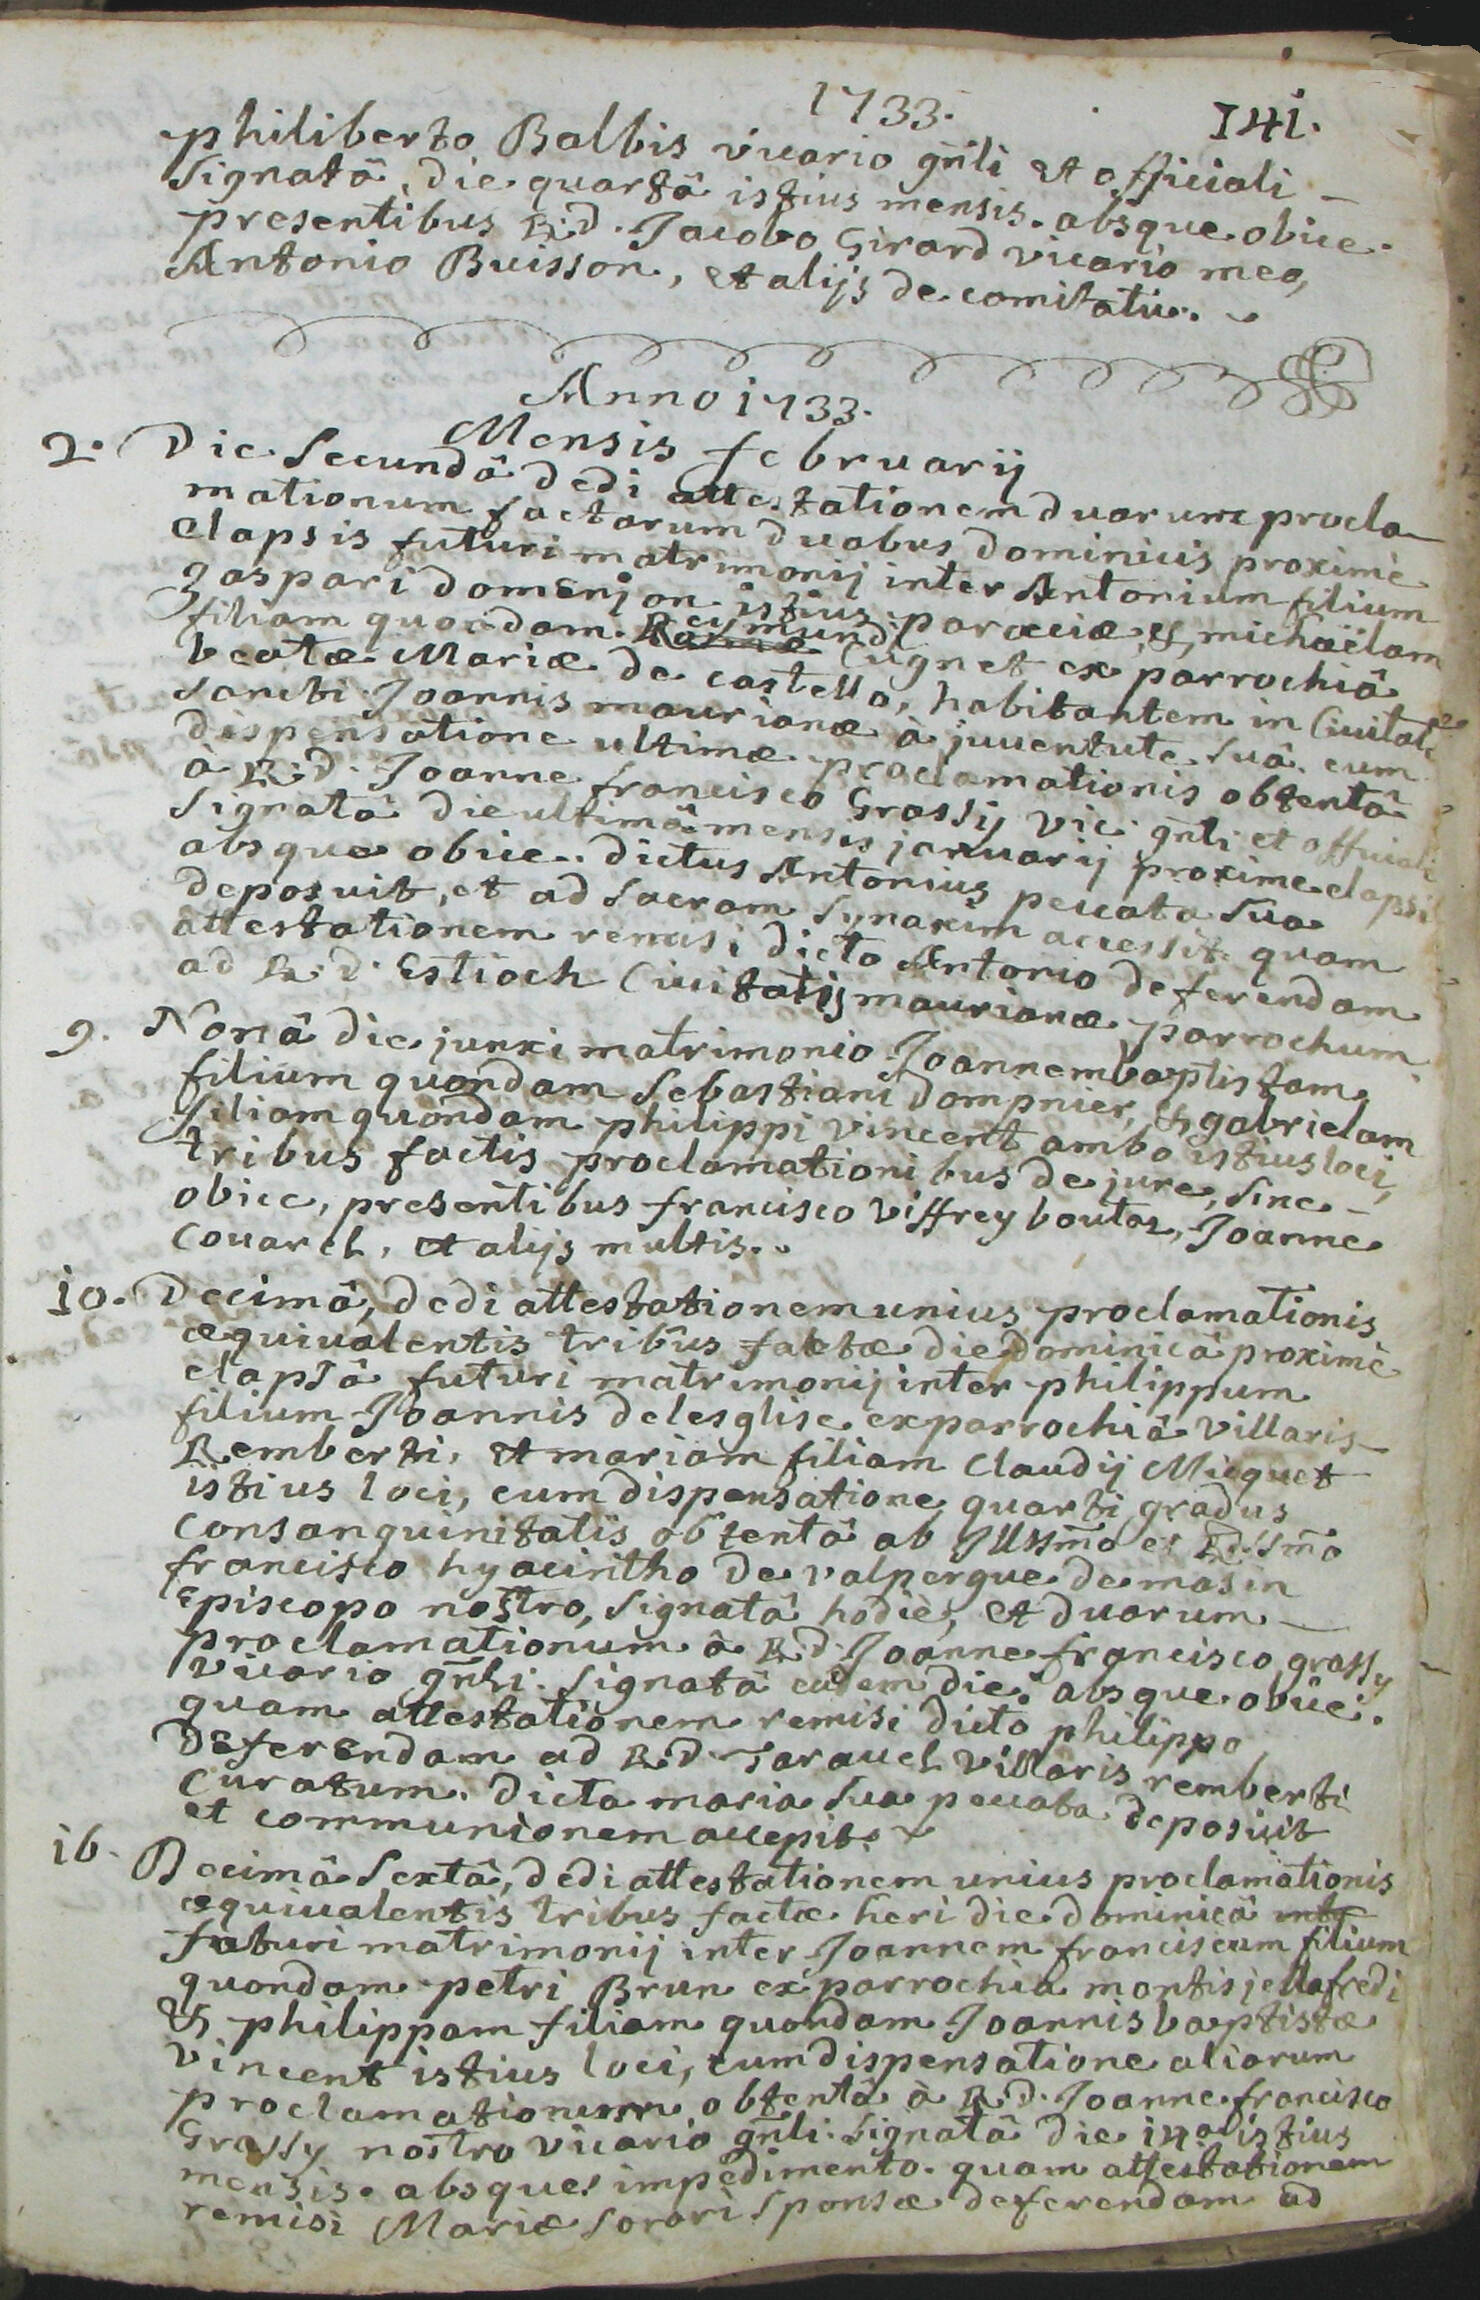 1733.
141.
philiberto Balbis vicario gn̄li et officiali
signatâ, die quartâ istius mensis. absque obice.
presentibus R.d. Jacobo Girard vicario meo,
Antonio Buisson, et alijs de comitatu.
Anno 1733.
Mensis februarij
2. Die Secundâ dedi attestationem duarum procla
mationum factarum duabus dominicis proximè
elapsis futuri matrimonij inter Antonium filium
gaspari domenjon istius parociæ, & michaëlam
filiam quondam Reymundi Cugnet ex parrochiâ
beatæ Mariæ de castello, habitantem in Civitate
sancti Joannis maurianæ à juventute suâ. cum
dispensatione ultimæ proclamationis obtentâ
à R.d. Joanne francisco Grassij vic. gn̄li et officiali
signatâ die ultimâ mensis januarij proxime elapsi
absque obice. dictus Antonius peccata sua
deposuit, et ad sacram synaxim accessit. quam
attestationem remisi dicto Antonio deferendam
ad R.d. Estioch Civitatis maurianæ parrochum
9. Nonâ die junxi matrimonio Joannembaptistam
filium quondam Sebastiani Dompnier, & gabrielam
filiam quondam philippi vincent ambo istius loci,
tribus factis proclamationibus de jure, sine
obice, presentibus francisco viffrey boutaz, Joanne
Couarch, et alijs multis.
10. Decimâ, dedi attestationem unius proclamationis
æquivalentis tribus factæ die dominicâ proximè
elapsâ futuri matrimonij inter philippum
filium Joannis delesglise ex parrochiâ villaris
Remberti, et mariam filiam Claudij Micquet
istius loci, cum dispensatione quarti gradus
consanguinitatis obtentâ ab Illssm̄o et Rd.ssm̄o
francisco hyacintho de valpergue de masin
Episcopo nostro, signatâ hodiè, et duarum
proclamationum à R.d. Joanne francisco grassy
vicario gn̄li. signatâ eadem die. absque obice.
quam attestationem remisi dicto philippo
deferendam ad R.d. Taravel villaris remberti
curatum. dicta maria sua peccata deposuit
et communionem accepit.
16. Decimâ Sextâ, dedi attestationem unius proclamationis
æquivalentis tribus factæ heri die dominicâ
futuri matrimonij inter Joannem franciscum filium
quondam petri Brun ex parrochia montisjellafredi
& philippam filiam quondam Joannis baptistæ
vincent istius loci, cum dispensatione aliarum
proclamationum obtentâ à R.d. Joanne francisco
Grassy nostro vicario gn̄li. signatâ die 14â istius
mensis. absque impedimento. quam attestationem
remisi Mariæ sorori sponsæ deferendam ad